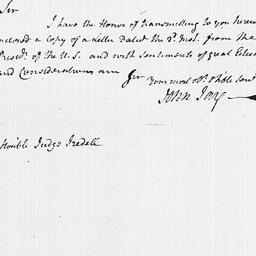 Sir
I have the Honor of transmitting to you herew
enclosed a copy of a Letter dated the 3d. Inst. from the
Presdt. of the U.S. and with sentiments of great Estee
and Consideration am
Sir your most obt. & hble Servt
John Jay
Honble Judge Iredell